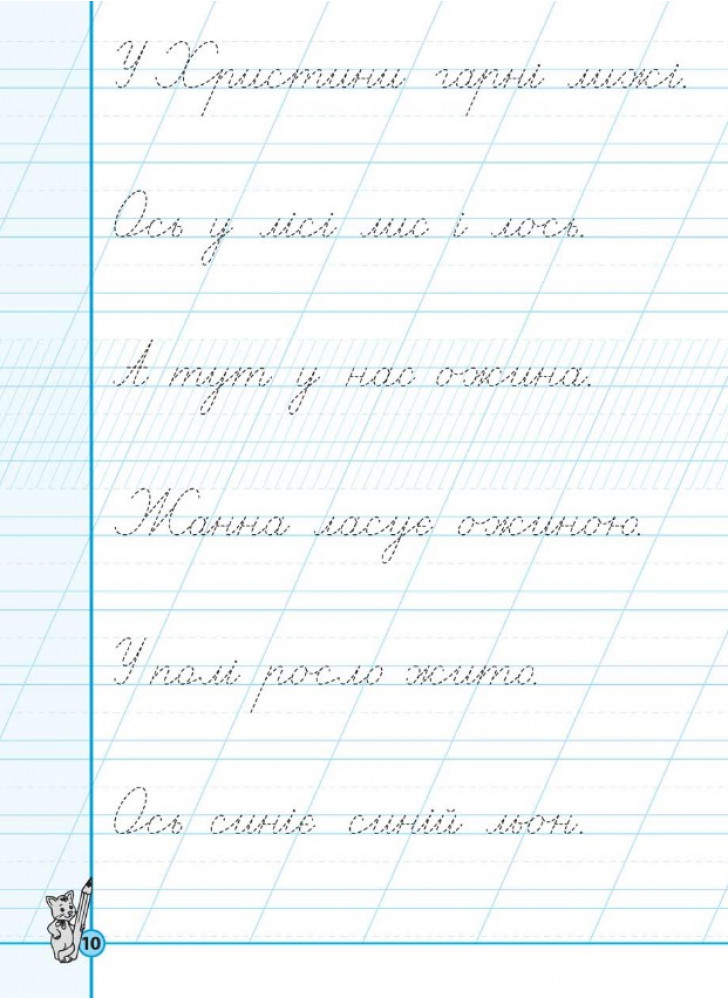 У Христини гарні лижі.
Ось у лісі лис і лось.
А тут у нас ожина.
Жанна ласує ожиною.
У полі росло жито.
Ось синіє синій льон.
10